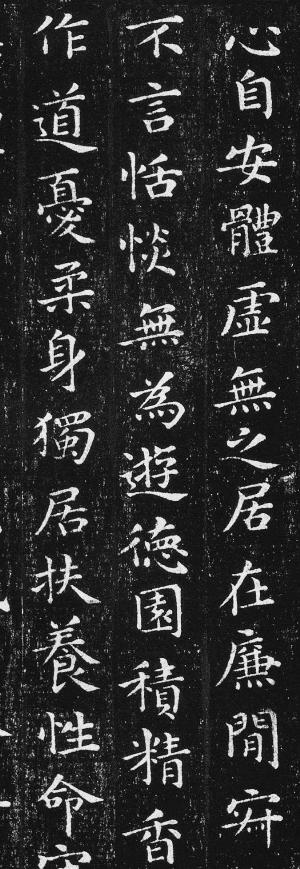 心自安體虛無之居在廉間㝠
不言恬惔無為遊德園積精香
作道憂柔身獨居扶養性命守